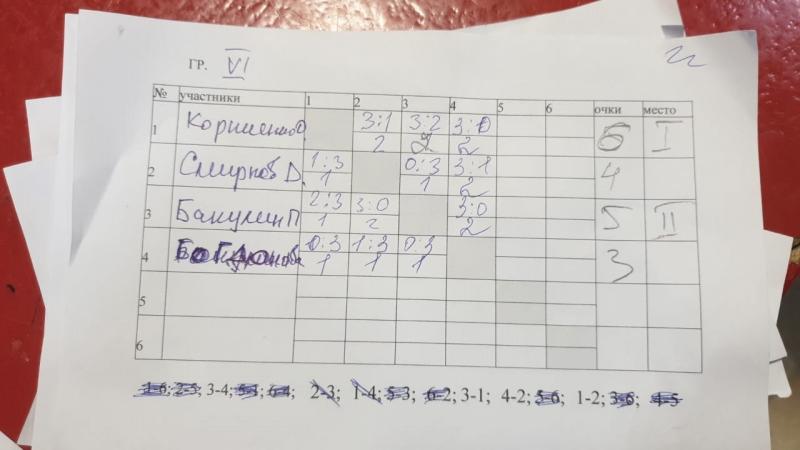 ГР. VI
№ участники 1 2 3 4 5 6 очки место
1 Корниенко О 3:1 3:2 3:0 6 I
2 2 2
2 Смирнов Д. 1:3 0:3 3:1 4
1 1 2
3 Бакулин П 2:3 3:0 3:0 5 II
1 2 2
4 0:3 1:3 0:3 3
1 1 1
5
6
1-6; 2-5; 3-4; 5-1; 6-4; 2-3; 1-4; 5-3; 6-2; 3-1; 4-2; 5-6; 1-2; 3-6; 4-5